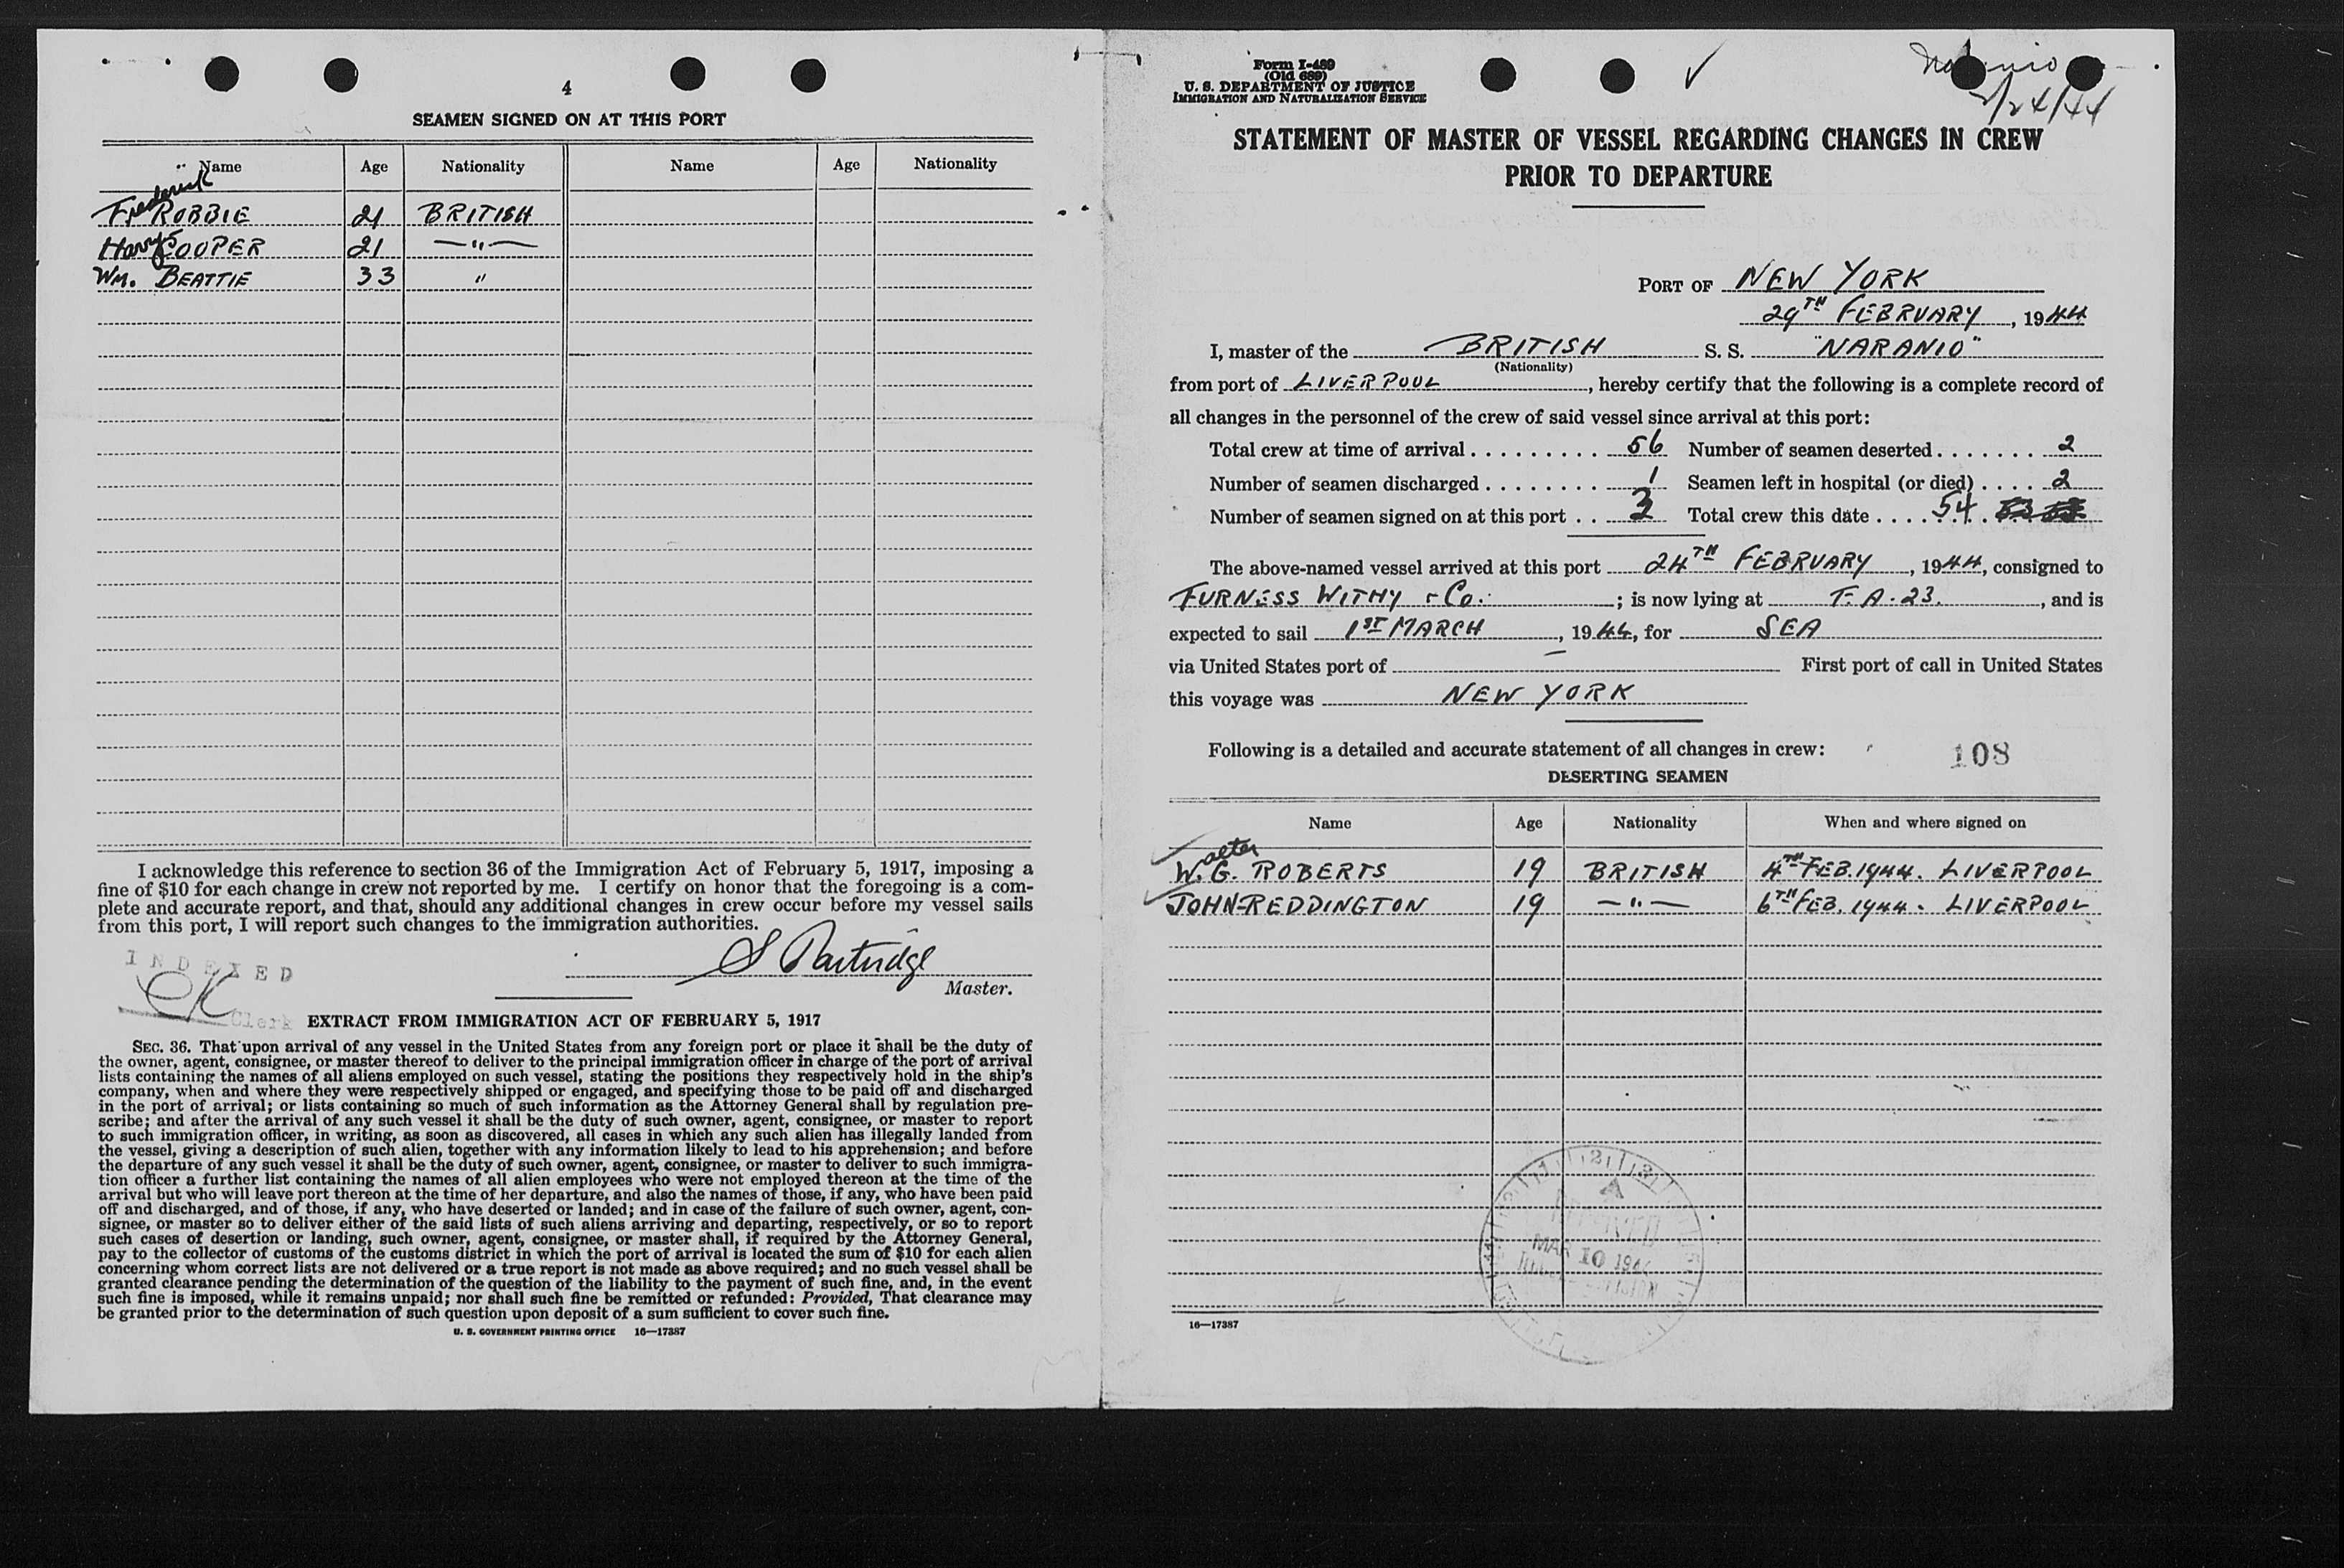 4
SEAMEN SIGNED ON AT THIS PORT
Name Age Nationality Name Age Nationality
Frederick
F. ROBBIE 21 BRITISH
Harry COOPER 21 —"—
WM. BEATTIE 33 "
I acknowledge this reference to section 36 of the Immigration Act of February 5, 1917, imposing a
fine of $10 for each change in crew not reported by me. I certify on honor that the foregoing is a com-
plete and accurate report, and that, should any additional changes in crew occur before my vessel sails
from this port, I will report such changes to the immigration authorities.
S Partridge
Master.
INDEXED
Clerk
EXTRACT FROM IMMIGRATION ACT OF FEBRUARY 5, 1917
SEC. 36. That upon arrival of any vessel in the United States from any foreign port or place it shall be the duty of
the owner, agent, consignee, or master thereof to deliver to the principal immigration officer in charge of the port of arrival
lists containing the names of all aliens employed on such vessel, stating the positions they respectively hold in the ship's
company, when and where they were respectively shipped or engaged, and specifying those to be paid off and discharged
in the port of arrival; or lists containing so much of such information as the Attorney General shall by regulation pre-
scribe; and after the arrival of any such vessel it shall be the duty of such owner, agent, consignee, or master to report
to such immigration officer, in writing, as soon as discovered, all cases in which any such alien has illegally landed from
the vessel, giving a description of such alien, together with any information likely to lead to his apprehension; and before
the departure of any such vessel it shall be the duty of such owner, agent, consignee, or master to deliver to such immigra-
tion officer a further list containing the names of all alien employees who were not employed thereon at the time of the
arrival but who will leave port thereon at the time of her departure, and also the names of those, if any, who have been paid
off and discharged, and of those, if any, who have deserted or landed; and in case of the failure of such owner, agent, con-
signee, or master so to deliver either of the said lists of such aliens arriving and departing, respectively, or so to report
such cases of desertion or landing, such owner, agent, consignee, or master shall, if required by the Attorney General,
pay to the collector of customs of the customs district in which the port of arrival is located the sum of $10 for each alien
concerning whom correct lists are not delivered or a true report is not made as above required; and no such vessel shall be
granted clearance pending the determination of the question of the liability to the payment of such fine, and, in the event
such fine is imposed, while it remains unpaid; nor shall such fine be remitted or refunded: Provided, That clearance may
be granted prior to the determination of such question upon deposit of a sum sufficient to cover such fine.
U. S. GOVERNMENT PRINTING OFFICE 16—17387
Form I-489
(Old 689)
U. S. DEPARTMENT OF JUSTICE
IMMIGRATION AND NATURALIZATION SERVICE
2/24/44
STATEMENT OF MASTER OF VESSEL REGARDING CHANGES IN CREW
PRIOR TO DEPARTURE
PORT OF NEW YORK
29TH FEBRUARY, 1944
I, master of the BRITISH S. S. "NARANIO"
(Nationality)
from port of LIVERPOOL, hereby certify that the following is a complete record of
all changes in the personnel of the crew of said vessel since arrival at this port:
Total crew at time of arrival 56 Number of seamen deserted 2
Number of seamen discharged 1 Seamen left in hospital (or died) 2
Number of seamen signed on at this port 3 Total crew this date 54
The above-named vessel arrived at this port 24TH FEBRUARY, 1944, consigned to
FURNESS WITHY & Co.; is now lying at T. A. 23., and is
expected to sail 1ST MARCH, 1944, for SEA
via United States port of — First port of call in United States
this voyage was NEW YORK
Following is a detailed and accurate statement of all changes in crew:
108
DESERTING SEAMEN
Name Age Nationality When and where signed on
Walter
W. G. ROBERTS 19 BRITISH 4TH FEB. 1944. LIVERPOOL
JOHN REDDINGTON 19 —"— 6TH FEB. 1944. LIVERPOOL
MAR 10 1944
16—17387